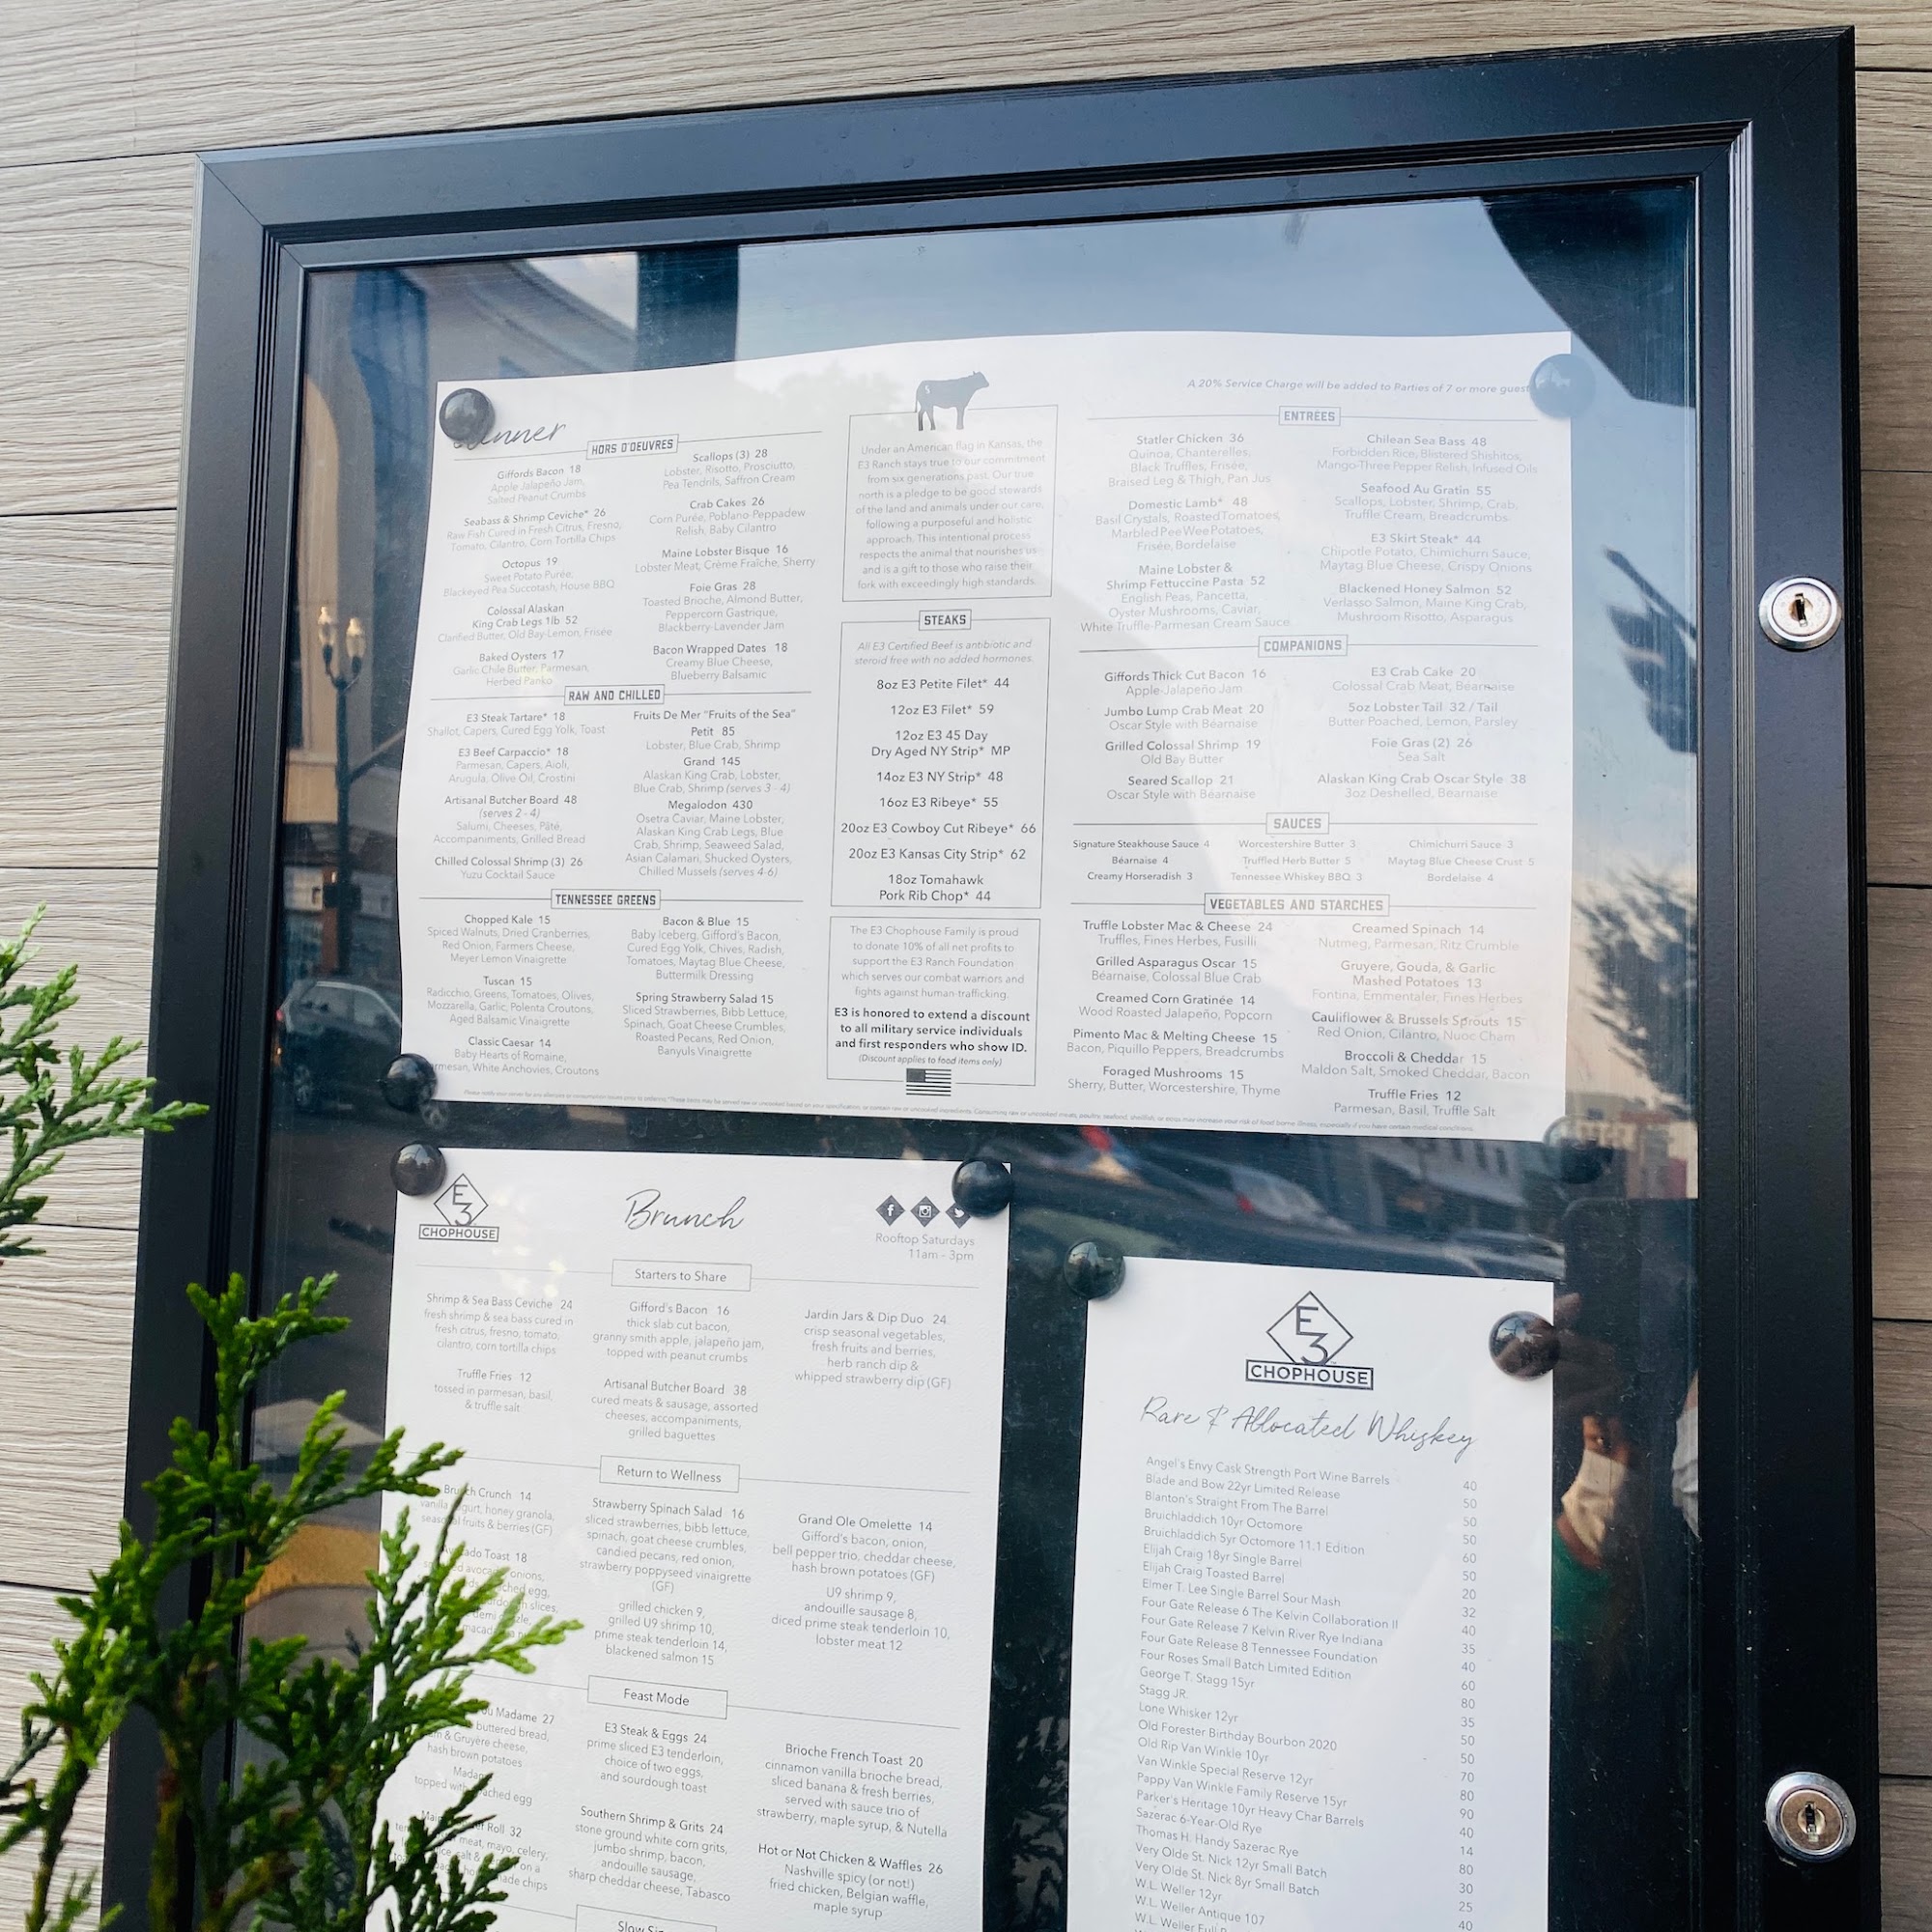 A 20% Service Charge will be added to Parties of 7 or more guest
HORS D'OEUVRES
Giffords Bacon 18
Apple Jalapeño Jam,
Salted Peanut Crumbs
Seabass & Shrimp Ceviche* 26
Raw Fish Cured in Fresh Citrus, Fresno,
Tomato, Cilantro, Corn Tortilla Chips
Octopus 19
Sweet Potato Purée,
Blackeyed Pea Succotash, House BBQ
Colossal Alaskan
King Crab Legs 1lb 52
Clarified Butter, Old Bay-Lemon, Frisée
Baked Oysters 17
Garlic Chile Butter, Parmesan,
Herbed Panko
Scallops (3) 28
Lobster, Risotto, Prosciutto,
Pea Tendrils, Saffron Cream
Crab Cakes 26
Corn Purée, Poblano-Peppadew
Relish, Baby Cilantro
Maine Lobster Bisque 16
Lobster Meat, Crème Fraîche, Sherry
Foie Gras 28
Toasted Brioche, Almond Butter,
Peppercorn Gastrique,
Blackberry-Lavender Jam
Bacon Wrapped Dates 18
Creamy Blue Cheese,
Blueberry Balsamic
RAW AND CHILLED
E3 Steak Tartare* 18
Shallot, Capers, Cured Egg Yolk, Toast
E3 Beef Carpaccio* 18
Parmesan, Capers, Aioli,
Arugula, Olive Oil, Crostini
Artisanal Butcher Board 48
(serves 2 - 4)
Salumi, Cheeses, Pâté,
Accompaniments, Grilled Bread
Chilled Colossal Shrimp (3) 26
Yuzu Cocktail Sauce
Fruits De Mer "Fruits of the Sea"
Petit 85
Lobster, Blue Crab, Shrimp
Grand 145
Alaskan King Crab, Lobster,
Blue Crab, Shrimp (serves 3 - 4)
Megalodon 430
Osetra Caviar, Maine Lobster,
Alaskan King Crab Legs, Blue
Crab, Shrimp, Seaweed Salad,
Asian Calamari, Shucked Oysters,
Chilled Mussels (serves 4-6)
TENNESSEE GREENS
Chopped Kale 15
Spiced Walnuts, Dried Cranberries,
Red Onion, Farmers Cheese,
Meyer Lemon Vinaigrette
Tuscan 15
Radicchio, Greens, Tomatoes, Olives,
Mozzarella, Garlic, Polenta Croutons,
Aged Balsamic Vinaigrette
Classic Caesar 14
Baby Hearts of Romaine,
rmesan, White Anchovies, Croutons
Bacon & Blue 15
Baby Iceberg, Gifford's Bacon,
Cured Egg Yolk, Chives, Radish,
Tomatoes, Maytag Blue Cheese,
Buttermilk Dressing
Spring Strawberry Salad 15
Sliced Strawberries, Bibb Lettuce,
Spinach, Goat Cheese Crumbles,
Roasted Pecans, Red Onion,
Banyuls Vinaigrette
Under an American flag in Kansas, the
E3 Ranch stays true to our commitment
from six generations past. Our true
north is a pledge to be good stewards
of the land and animals under our care,
following a purposeful and holistic
approach. This intentional process
respects the animal that nourishes us
and is a gift to those who raise their
fork with exceedingly high standards.
STEAKS
All E3 Certified Beef is antibiotic and
steroid free with no added hormones.
8oz E3 Petite Filet* 44
12oz E3 Filet* 59
12oz E3 45 Day
Dry Aged NY Strip* MP
14oz E3 NY Strip* 48
16oz E3 Ribeye* 55
20oz E3 Cowboy Cut Ribeye* 66
20oz E3 Kansas City Strip* 62
18oz Tomahawk
Pork Rib Chop* 44
The E3 Chophouse Family is proud
to donate 10% of all net profits to
support the E3 Ranch Foundation
which serves our combat warriors and
fights against human-trafficking.
E3 is honored to extend a discount
to all military service individuals
and first responders who show ID.
(Discount applies to food items only)
ENTRÉES
Statler Chicken 36
Quinoa, Chanterelles,
Black Truffles, Frisée,
Braised Leg & Thigh, Pan Jus
Domestic Lamb* 48
Basil Crystals, Roasted Tomatoes,
Marbled Pee Wee Potatoes,
Frisée, Bordelaise
Maine Lobster &
Shrimp Fettuccine Pasta 52
English Peas, Pancetta,
Oyster Mushrooms, Caviar,
White Truffle-Parmesan Cream Sauce
Chilean Sea Bass 48
Forbidden Rice, Blistered Shishitos,
Mango-Three Pepper Relish, Infused Oils
Seafood Au Gratin 55
Scallops, Lobster, Shrimp, Crab,
Truffle Cream, Breadcrumbs
E3 Skirt Steak* 44
Chipotle Potato, Chimichurri Sauce,
Maytag Blue Cheese, Crispy Onions
Blackened Honey Salmon 52
Verlasso Salmon, Maine King Crab,
Mushroom Risotto, Asparagus
COMPANIONS
Giffords Thick Cut Bacon 16
Apple-Jalapeño Jam
Jumbo Lump Crab Meat 20
Oscar Style with Béarnaise
Grilled Colossal Shrimp 19
Old Bay Butter
Seared Scallop 21
Oscar Style with Béarnaise
E3 Crab Cake 20
Colossal Crab Meat, Béarnaise
5oz Lobster Tail 32 / Tail
Butter Poached, Lemon, Parsley
Foie Gras (2) 26
Sea Salt
Alaskan King Crab Oscar Style 38
3oz Deshelled, Béarnaise
SAUCES
Signature Steakhouse Sauce 4
Béarnaise 4
Creamy Horseradish 3
Worcestershire Butter 3
Truffled Herb Butter 5
Tennessee Whiskey BBQ 3
Chimichurri Sauce 3
Maytag Blue Cheese Crust 5
Bordelaise 4
VEGETABLES AND STARCHES
Truffle Lobster Mac & Cheese 24
Truffles, Fines Herbes, Fusilli
Grilled Asparagus Oscar 15
Béarnaise, Colossal Blue Crab
Creamed Corn Gratinée 14
Wood Roasted Jalapeño, Popcorn
Pimento Mac & Melting Cheese 15
Bacon, Piquillo Peppers, Breadcrumbs
Foraged Mushrooms 15
Sherry, Butter, Worcestershire, Thyme
Creamed Spinach 14
Nutmeg, Parmesan, Ritz Crumble
Gruyere, Gouda, & Garlic
Mashed Potatoes 13
Fontina, Emmentaler, Fines Herbes
Cauliflower & Brussels Sprouts 15
Red Onion, Cilantro, Nuoc Cham
Broccoli & Cheddar 15
Maldon Salt, Smoked Cheddar, Bacon
Truffle Fries 12
Parmesan, Basil, Truffle Salt
E3
CHOPHOUSE
Brunch
Rooftop Saturdays
11am - 3pm
Starters to Share
Shrimp & Sea Bass Ceviche 24
fresh shrimp & sea bass cured in
fresh citrus, fresno, tomato,
cilantro, corn tortilla chips
Truffle Fries 12
tossed in parmesan, basil,
& truffle salt
Gifford's Bacon 16
thick slab cut bacon,
granny smith apple, jalapeño jam,
topped with peanut crumbs
Artisanal Butcher Board 38
cured meats & sausage, assorted
cheeses, accompaniments,
grilled baguettes
Jardin Jars & Dip Duo 24
crisp seasonal vegetables,
fresh fruits and berries,
herb ranch dip &
whipped strawberry dip (GF)
Return to Wellness
Crunch 14
vanilla honey granola,
fruits & berries (GF)
Toast 18
onions,
egg,
slices,
Strawberry Spinach Salad 16
sliced strawberries, bibb lettuce,
spinach, goat cheese crumbles,
candied pecans, red onion,
strawberry poppyseed vinaigrette
(GF)
grilled chicken 9,
grilled U9 shrimp 10,
prime steak tenderloin 14,
blackened salmon 15
Grand Ole Omelette 14
Gifford's bacon, onion,
bell pepper trio, cheddar cheese,
hash brown potatoes (GF)
U9 shrimp 9,
andouille sausage 8,
diced prime steak tenderloin 10,
lobster meat 12
Feast Mode
Madame 27
buttered bread,
& Gruyère cheese,
hash brown potatoes
topped with egg
Roll 32
meat, mayo, celery,
on a
chips
E3 Steak & Eggs 24
prime sliced E3 tenderloin,
choice of two eggs,
and sourdough toast
Southern Shrimp & Grits 24
stone ground white corn grits,
jumbo shrimp, bacon,
andouille sausage,
sharp cheddar cheese, Tabasco
Brioche French Toast 20
cinnamon vanilla brioche bread,
sliced banana & fresh berries,
served with sauce trio of
strawberry, maple syrup, & Nutella
Hot or Not Chicken & Waffles 26
Nashville spicy (or not!)
fried chicken, Belgian waffle,
maple syrup
E3
CHOPHOUSE
Rare & Allocated Whiskey
Angel's Envy Cask Strength Port Wine Barrels 40
Blade and Bow 22yr Limited Release 50
Blanton's Straight From The Barrel 50
Bruichladdich 10yr Octomore 50
Bruichladdich 5yr Octomore 11.1 Edition 60
Elijah Craig 18yr Single Barrel 50
Elijah Craig Toasted Barrel 20
Elmer T. Lee Single Barrel Sour Mash 32
Four Gate Release 6 The Kelvin Collaboration II 40
Four Gate Release 7 Kelvin River Rye Indiana 35
Four Gate Release 8 Tennessee Foundation 40
Four Roses Small Batch Limited Edition 60
George T. Stagg 15yr 80
Stagg JR 35
Lone Whisker 12yr 50
Old Forester Birthday Bourbon 2020 50
Old Rip Van Winkle 10yr 70
Van Winkle Special Reserve 12yr 80
Pappy Van Winkle Family Reserve 15yr 90
Parker's Heritage 10yr Heavy Char Barrels 40
Sazerac 6-Year-Old Rye 14
Thomas H. Handy Sazerac Rye 80
Very Olde St. Nick 12yr Small Batch 30
Very Olde St. Nick 8yr Small Batch 25
W.L. Weller 12yr 40
W.L. Weller Antique 107
W.L. Weller Full